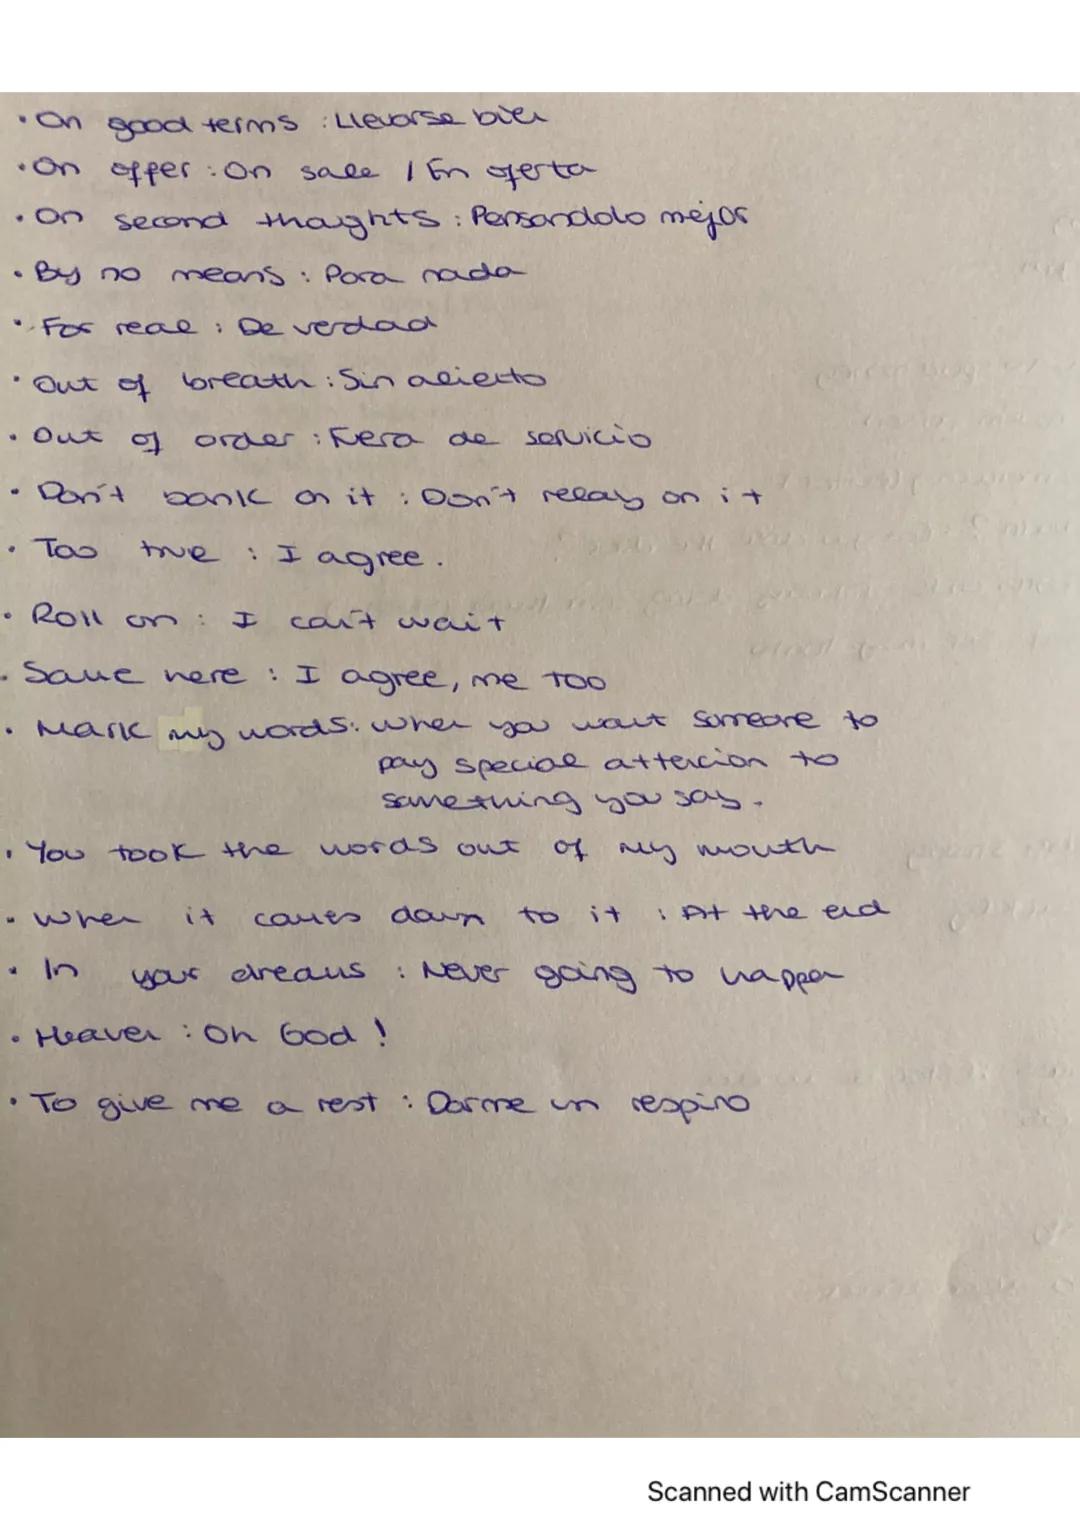 · On good terms : Llevarse bien
· On offer : On sale / En oferta
· On second thoughts : Pensandolo mejor
· By no means : Para nada
· For real : De verdad
· Out of breath : Sin aliento
· Out of order : Fuera de servicio
· Don't bank on it : Don't relay on it
· Too true : I agree.
· Roll on : I can't wait
· Same here : I agree, me too
· Mark my words : When you want someone to
pay special attencion to
something you say.
· You took the words out of my mouth
· When it comes down to it : At the end
· In your dreams : Never going to happen
· Heaven : Oh God !
· To give me a rest : Darme un respiro
Scanned with CamScanner